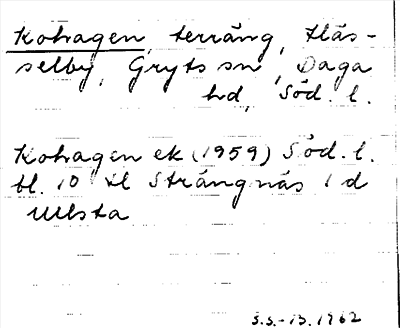 Kohagen, terräng, Häs-
selby, Gryts sn, Daga
hd, Söd. l.
Kohagen ek (1959) Söd. l.
bl. 10 Strängnäs 1 d
Ulsta
S.S.-B. 1962